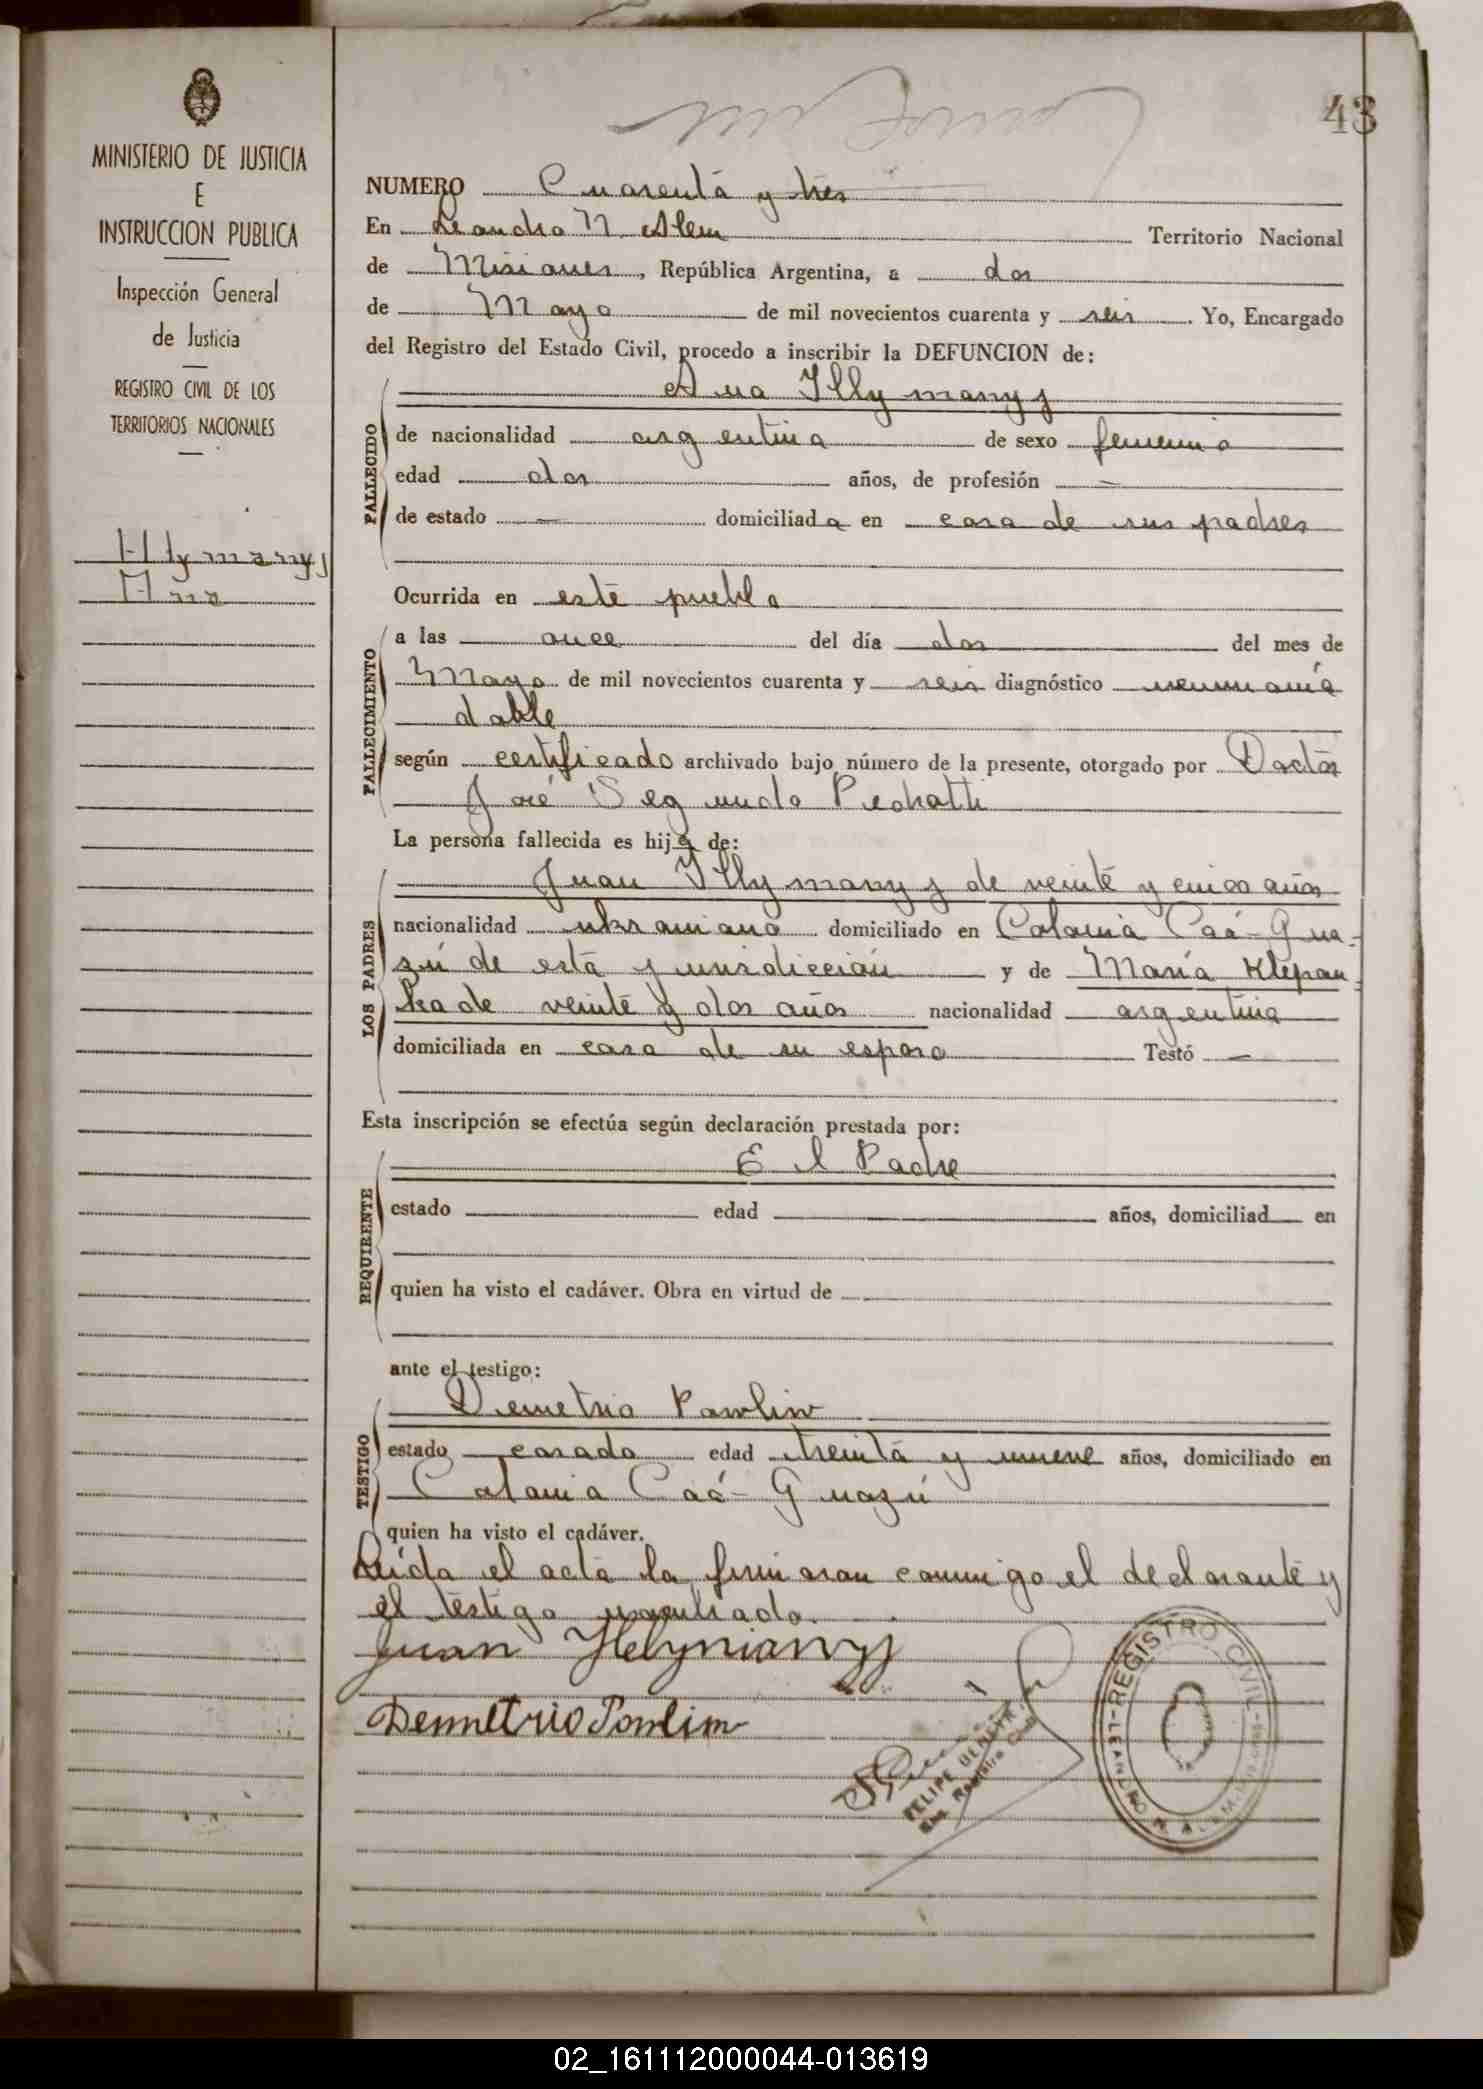 43
MINISTERIO DE JUSTICIA
E
INSTRUCCION PUBLICA
Inspección General
de Justicia
REGISTRO CIVIL DE LOS
TERRITORIOS NACIONALES
Ana
NUMERO Cuarenta y tres
En Leandro N. Alem Territorio Nacional
de Misiones, República Argentina, a dos
de Mayo de mil novecientos cuarenta y seis. Yo, Encargado
del Registro del Estado Civil, procedo a inscribir la DEFUNCION de:
Ana Illymanyj
FALLECIDO
de nacionalidad argentina de sexo femenino
edad dos años, de profesión —
de estado — domiciliada en casa de sus padres
Ocurrida en este pueblo
FALLECIMIENTO
a las once del día dos del mes de
Mayo de mil novecientos cuarenta y seis diagnóstico neumonía
doble
según certificado archivado bajo número de la presente, otorgado por Doctor
José Segundo
La persona fallecida es hija de:
LOS PADRES
Juan Illymanyj de veinte y cinco años
nacionalidad ukraniano domiciliado en Colonia Caá-Gua-
zú de esta jurisdicción y de María Klepan
ka de veinte y dos años nacionalidad argentina
domiciliada en casa de su esposo Testó —
Esta inscripción se efectúa según declaración prestada por:
El Padre
REQUIRENTE
estado edad años, domiciliad en
quien ha visto el cadáver. Obra en virtud de
ante el testigo:
Demetrio Pawliw
TESTIGO
estado casado edad treinta y nueve años, domiciliado en
Colonia Caá-Guazú
quien ha visto el cadáver.
Leída el acta la firmaron conmigo el declarante y
el testigo
Juan
Demetrio
FELIPE
Enc. Registro Civil
REGISTRO CIVIL
LEANDRO N. ALEM
02_161112000044-013619